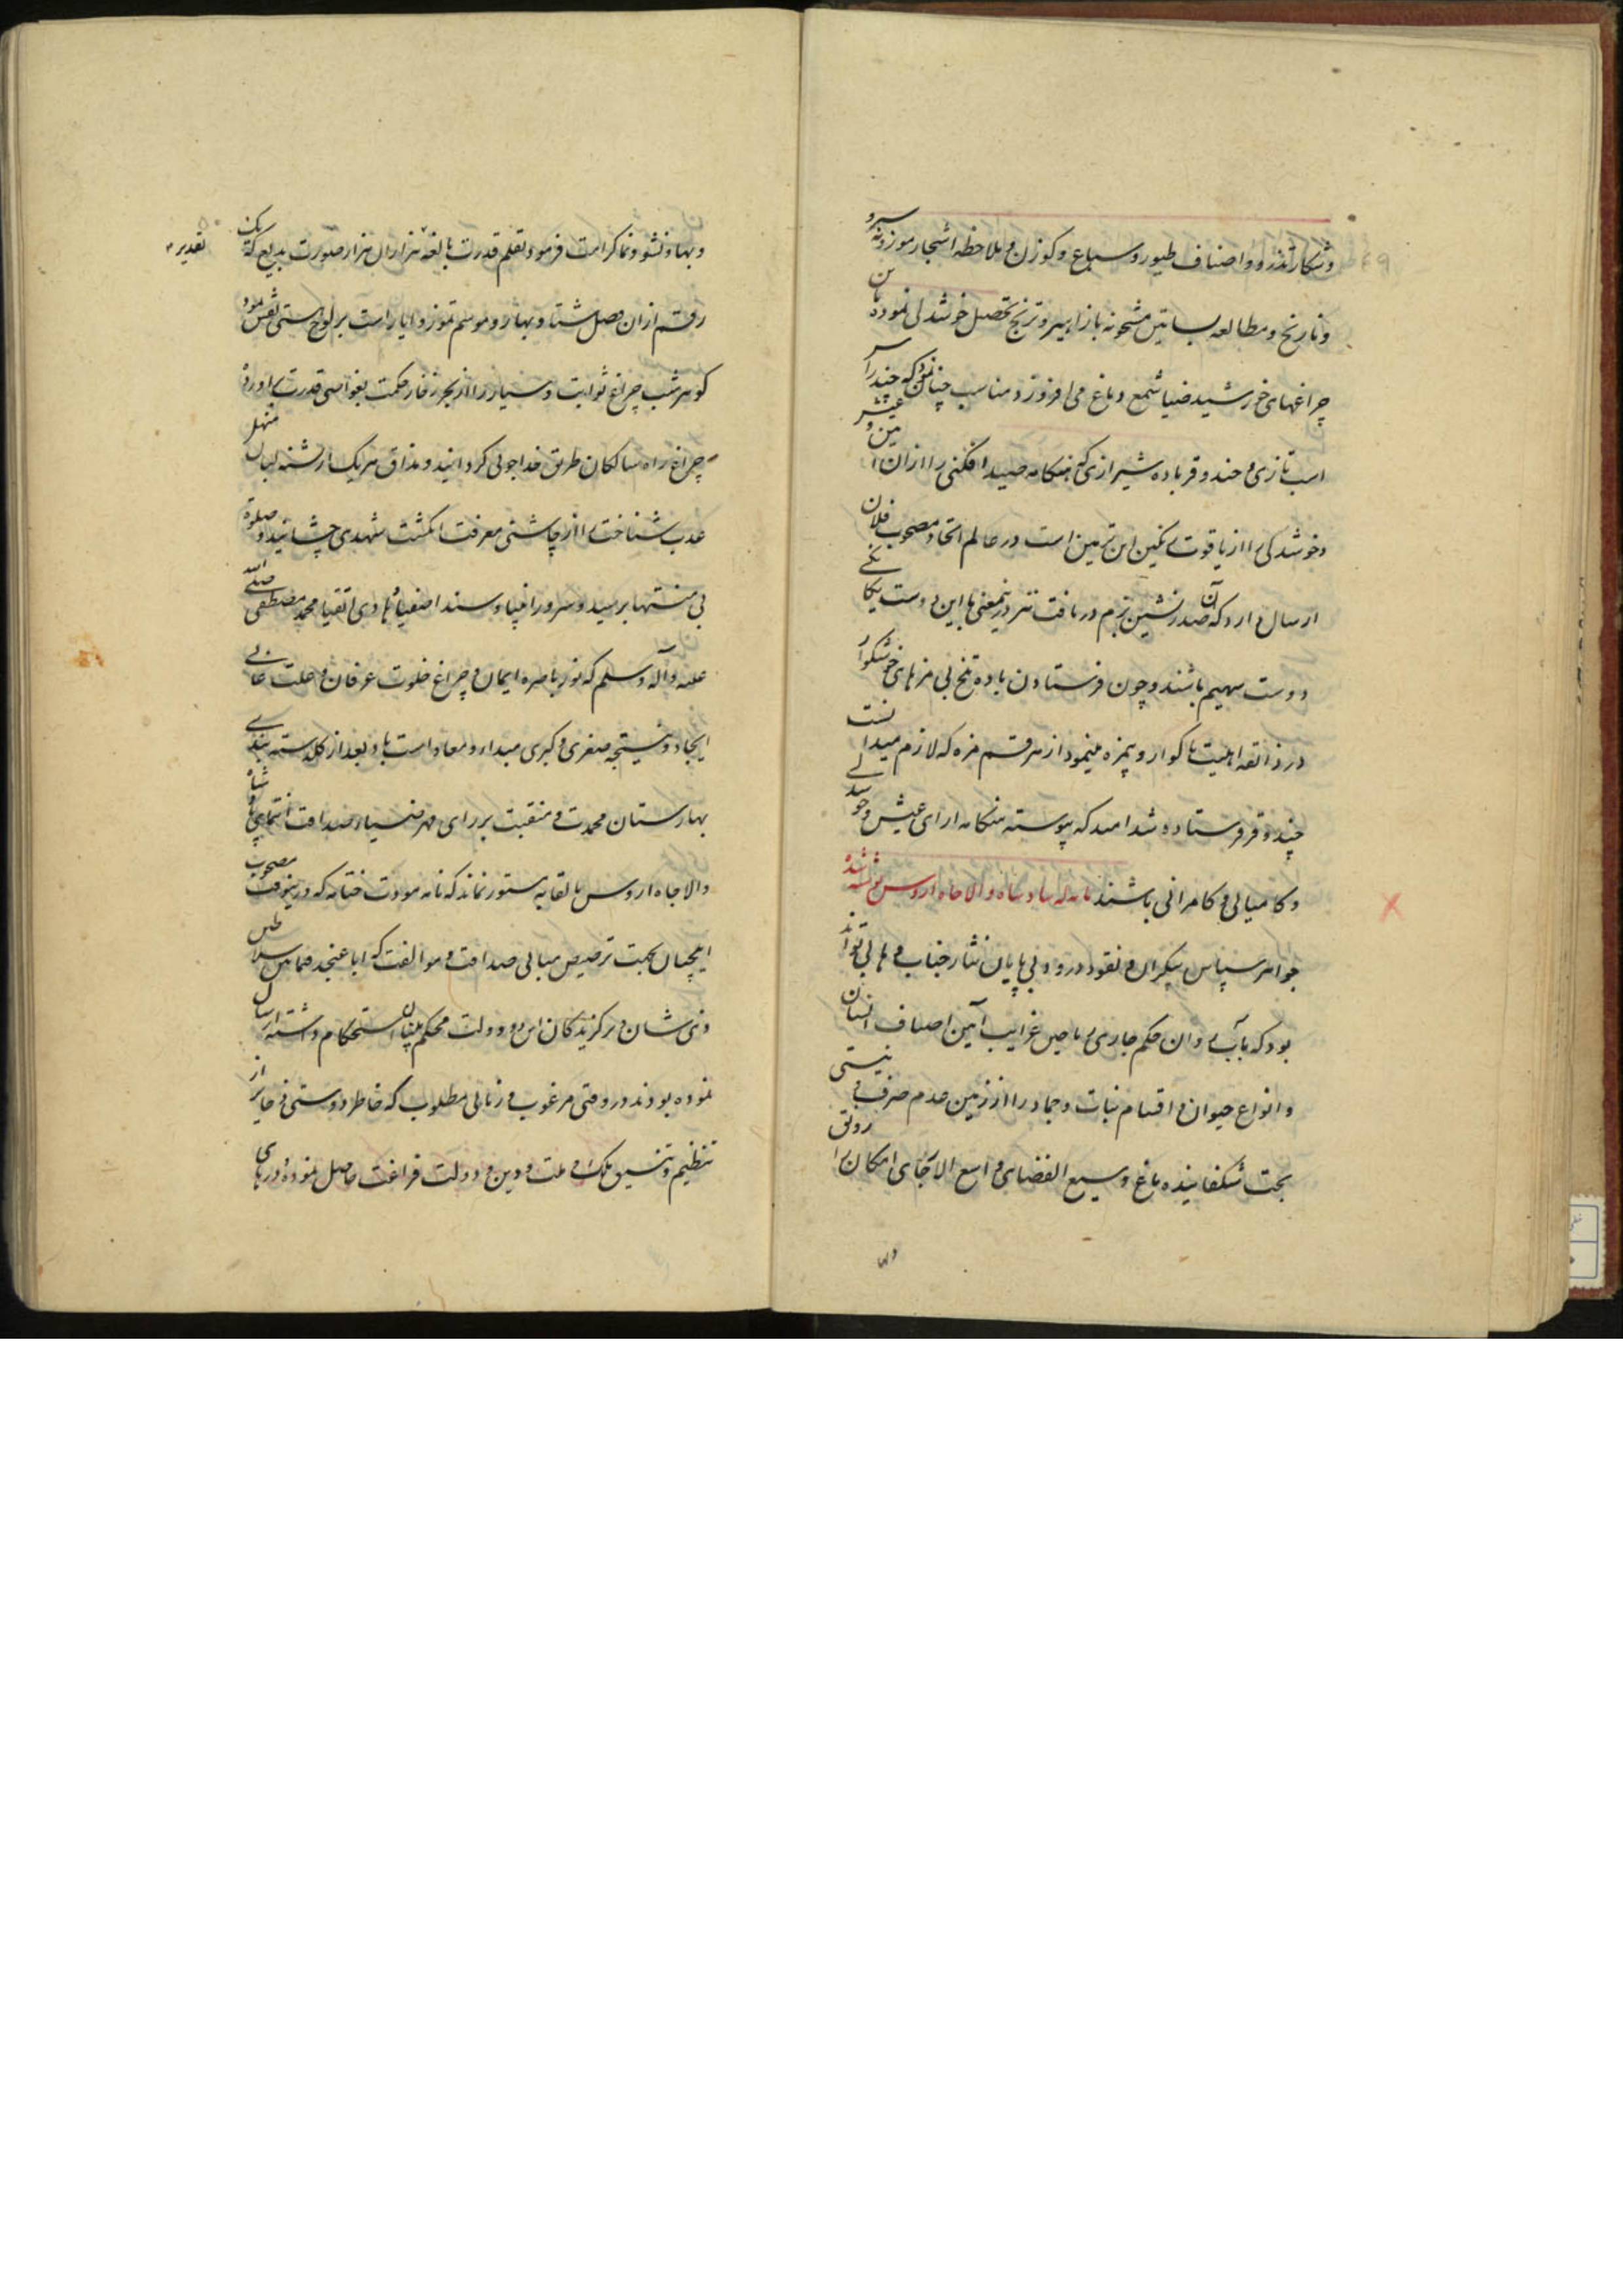 و شکار تذرو و اصناف طیور و سباع و کوزن و ملاحظه اشجار موزونه سرو
و نارنج و مطالعه بساتین مشحونه بازاهیر و ترنج تحصیل خوشدلی نموده
چراغهای خورشید ضیا شمع دماغ می افروزد مناسب چنان نمود که چند راس
اسب تازی و چند وقر باده شیرازی که هنگامه صید افکنی را ازان
و خوشدلی را از یاقوت نگین این تزیین است در عالم اتحاد مصحوب فلان
ارسال دارد که آن صدرنشین بزم دریافت نیز درینمعنی با این دوست یکانکی
دوست سهیم باشند و چون فرستادن باده تلخ بی مزهای خوشکوار
در ذائقه اهلیت ناکوار و بیمزه مینمود از هر قسم مزه که لازم میدانست
چند وقر فرستاده شد امید که پیوسته هنکامه ارای عیش و خوشدلی
و کامیابی و کامرانی باشند نامه که بپادشاه والاجاه اروس نوشته شده
جواهر سپاس بیکران و نقود درود بی پایان نثار جناب وهابی تواند
بود که بآب روان حکم جاری ریاحین غرایب آیین اصناف انسان
و انواع حیوان و اقسام نبات و جماد را از زمین عدم صرف و نیستی
بجت شکفانیده باغ وسیع الفضای واسع الارجای امکان را رونق
و بها و نشو و نما کرامت فرمود و بقلم قدرت بالغه هزاران هزار صورت بدیع که یک
تقدیر
رقم ازان فصل شتا و بهار و موسم تموز و ایار است بر لوح هستی نقش نموده
کوهر شب چراغ ثوابت و سیار را از بحر زخار حکمت بغواصی قدرت برآورده
چراغ راه سالکان طریق خداجوئی کردانید و مذاق هر یک از تشنه لبان منهل
عذب شناخت را از چاشنی معرفت انکشت شهدی چشانید و صلوة
بی منتها بر سید و سرور انبیا و سند اصفیا هادی اتقیا محمد مصطفی صلی الله
علیه و آله و سلم که نور باصره ایمان و چراغ خلوت عرفان و علت غائی
ایجاد و نتیجه صغری و کبری مبدا و معاد است باد بعد از کلدسته بندی
بهارستان محمدت و منقبت بر رای مهر ضیاء صداقت انتمای پادشاه
والاجاه اروس بالقابه مستور نماند که نامه مودت ختامه که درینوقت مصحوب
ایلچیان بجهت ترصیص مبانی صداقت و موالفت که ابا عنجد فیمابین سلاطین
ذی شان و برکزیدکان این دو دولت محکم بنیان استحکام داشته ارسال
نموده بودند در وقتی مرغوب و زمانی مطلوب که خاطر دوستی ذخایر از
تنظیم و تنسیق ملک و ملت و دین و دولت فراغت حاصل نموده درهای